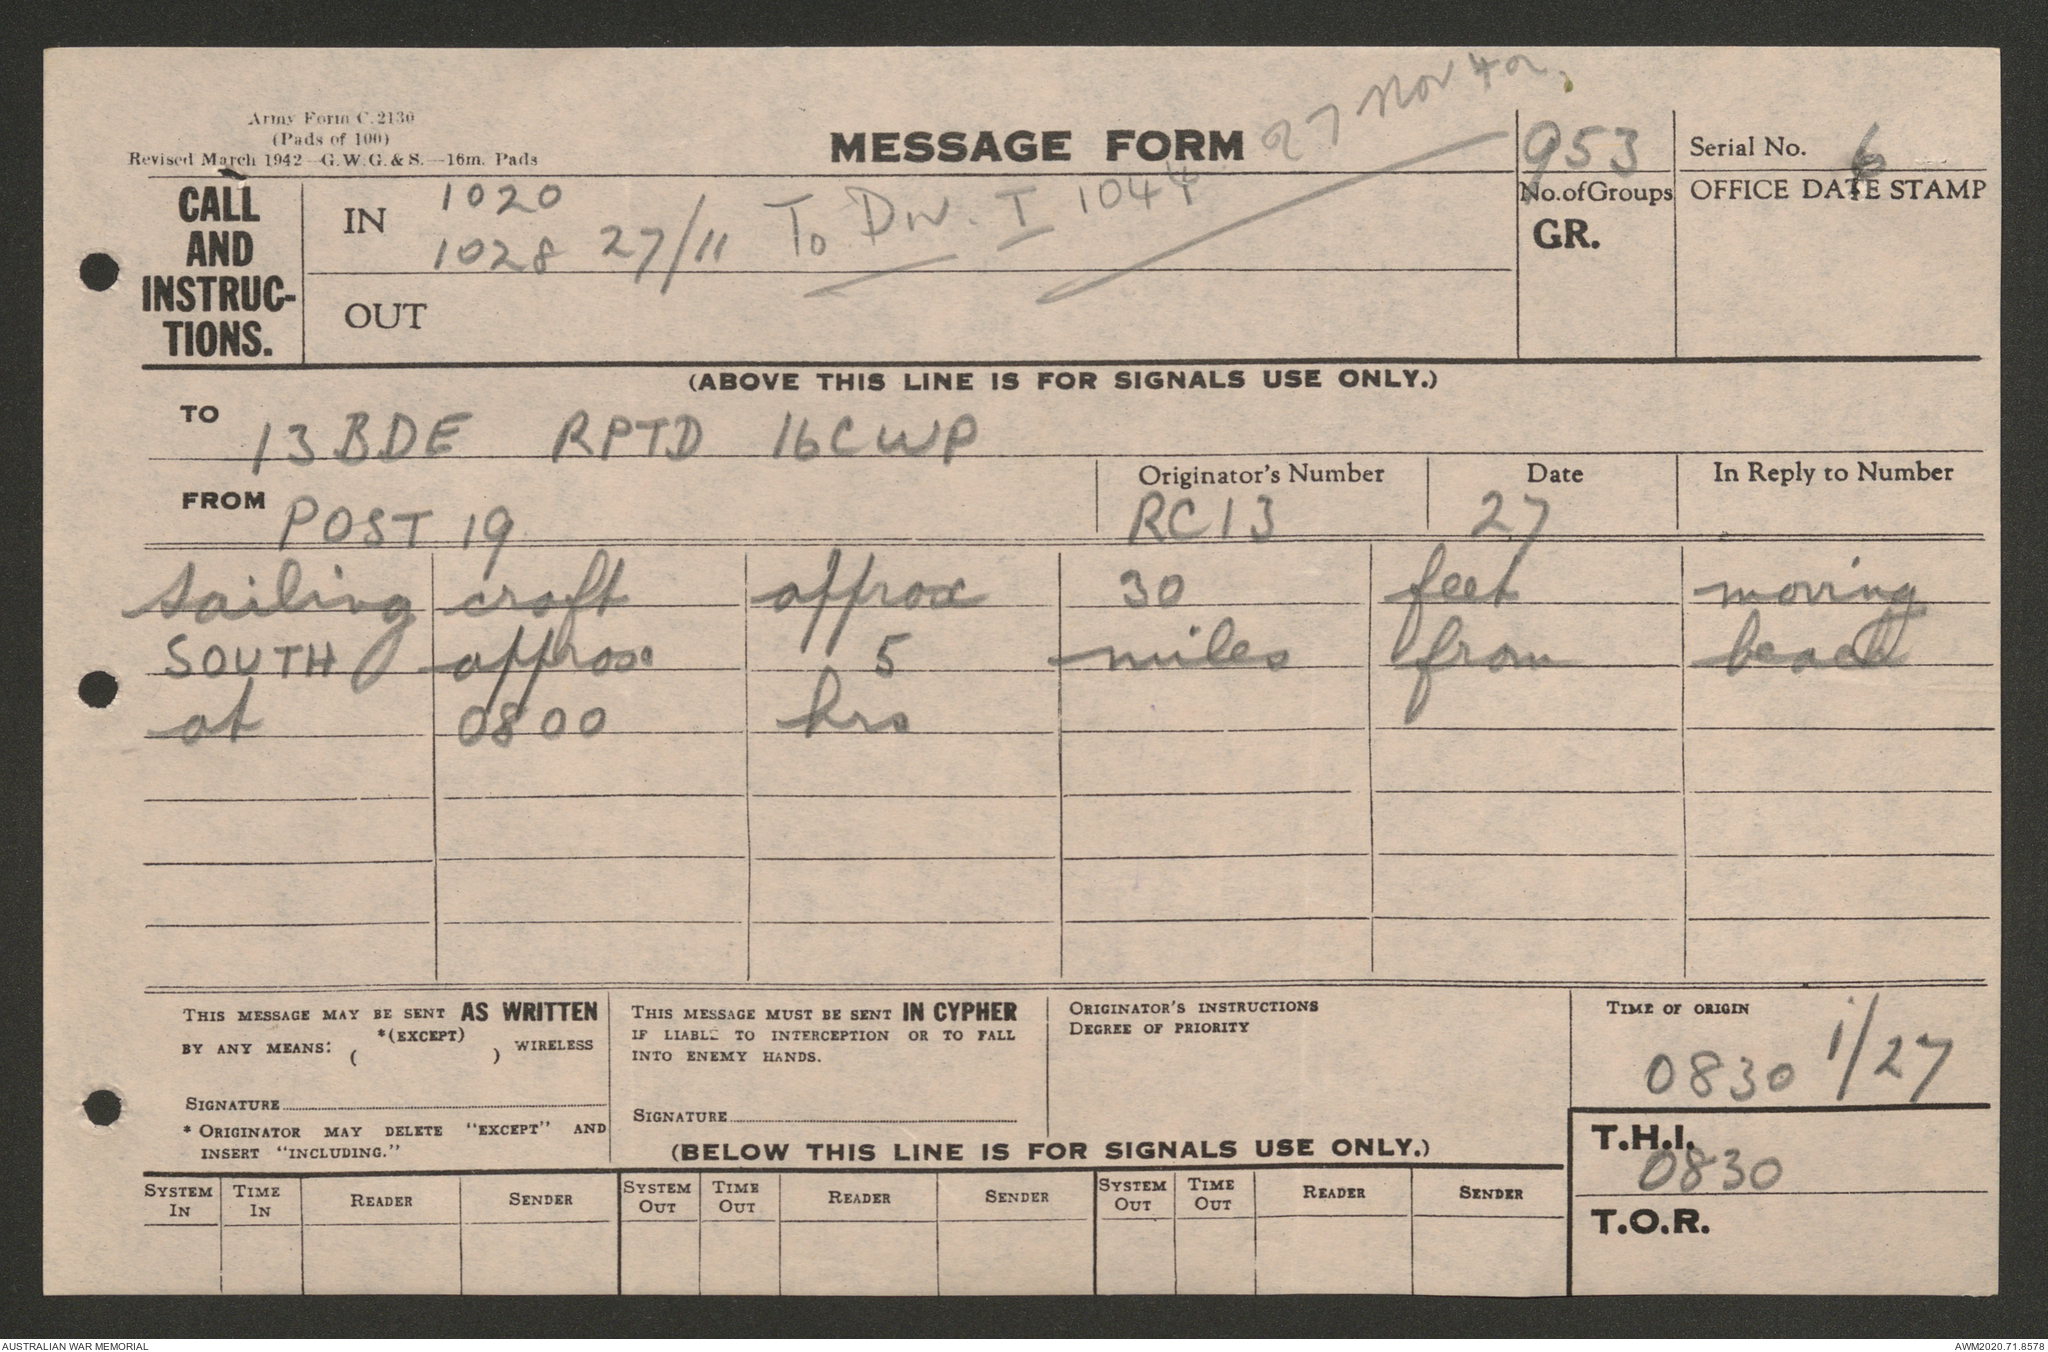 27 Nov 42.
Army Form C.2130
(Pads of 100)
Revised March 1942—G.W.G.&S.—16m. Pads
MESSAGE FORM
953
Serial No. 6
CALL AND INSTRUC-TIONS.
IN 1020
1028 27/11 To Div. I 1044
No. of Groups
GR.
OFFICE DATE STAMP
OUT
(ABOVE THIS LINE IS FOR SIGNALS USE ONLY.)
TO 13 BDE RPTD 16CWP
FROM POST 19
Originator's Number RC13
Date 27
In Reply to Number
sailing craft approx 30 feet moving
SOUTH approx 5 miles from beach
at 0800 hrs
THIS MESSAGE MAY BE SENT AS WRITTEN
BY ANY MEANS: *(EXCEPT) ( ) WIRELESS
SIGNATURE
* ORIGINATOR MAY DELETE "EXCEPT" AND
INSERT "INCLUDING."
THIS MESSAGE MUST BE SENT IN CYPHER
IF LIABLE TO INTERCEPTION OR TO FALL
INTO ENEMY HANDS.
SIGNATURE
ORIGINATOR'S INSTRUCTIONS
DEGREE OF PRIORITY
TIME OF ORIGIN
0830 1/27
(BELOW THIS LINE IS FOR SIGNALS USE ONLY.)
T.H.I.
0830
T.O.R.
SYSTEM IN TIME IN READER SENDER SYSTEM OUT TIME OUT READER SENDER SYSTEM OUT TIME OUT READER SENDER
AUSTRALIAN WAR MEMORIAL
AWM2020.71.8578